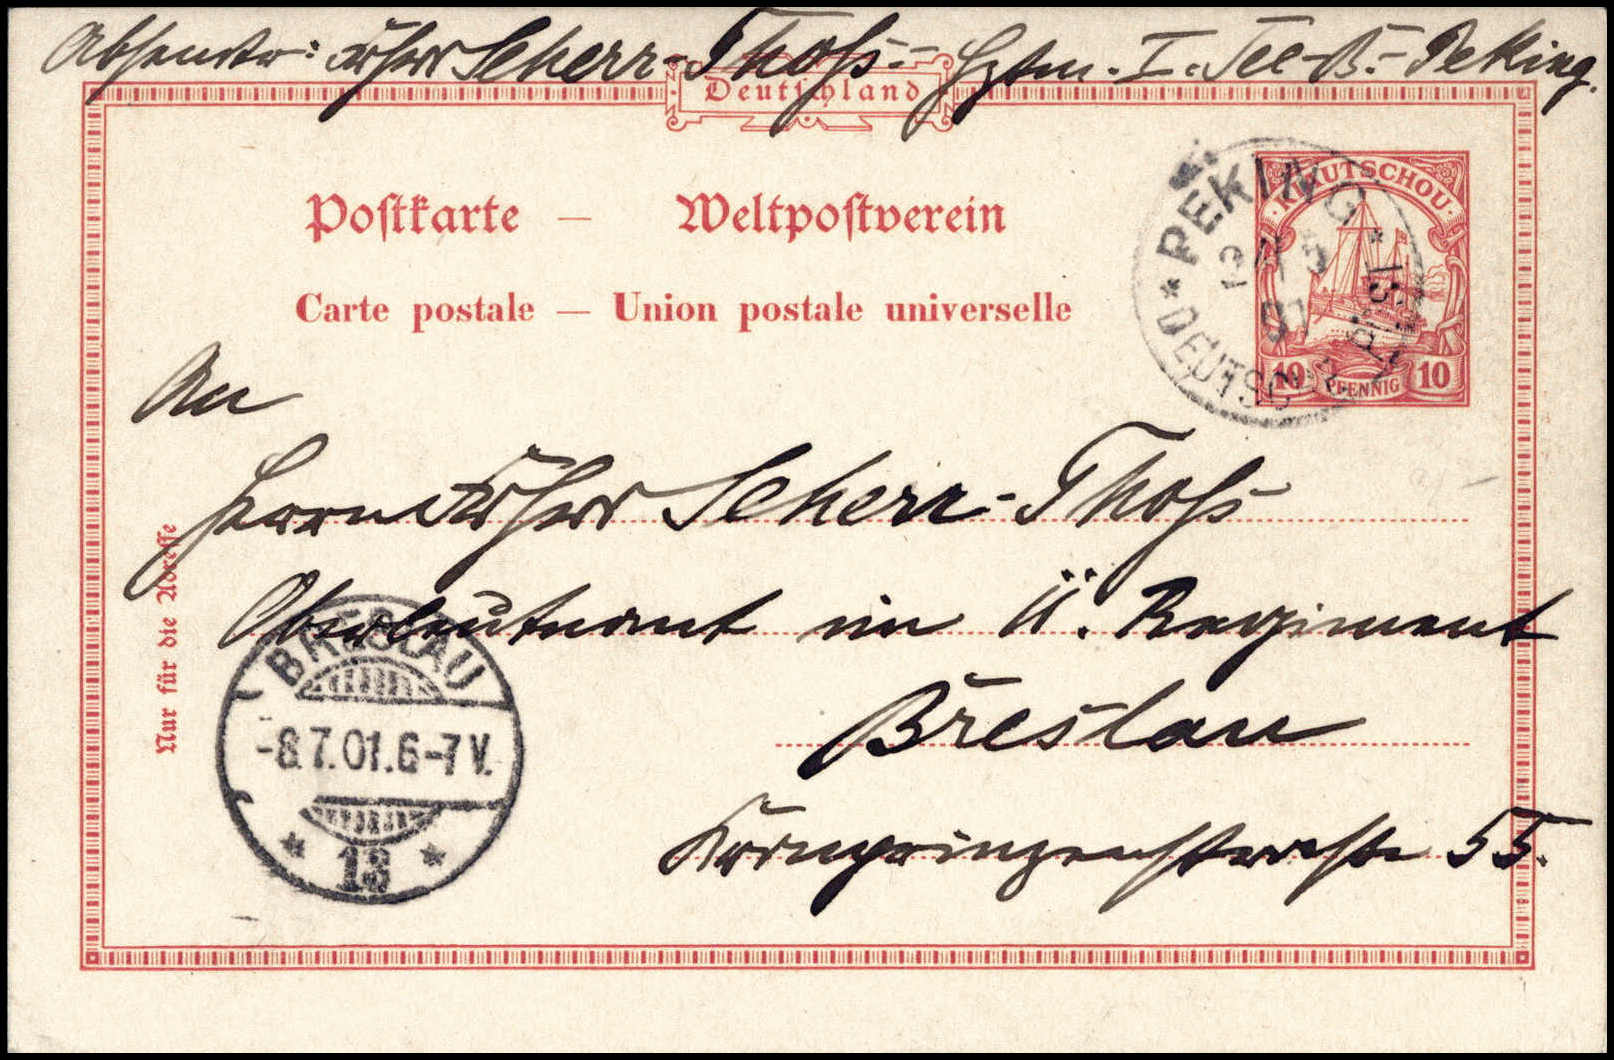 Absender: Frhrr Scherr-Thoss - Hptm. I. See-B. - Peking.
Deutschland
Postkarte — Weltpostverein
Carte postale — Union postale universelle
KIAUTSCHOU
10 PFENNIG 10
PEKING
DEUTSCHE
An
Herrn Frhrr Scherr-Thoss
Oberleutnant im 11. Regiment
Breslau
Kronprinzenstrasse 55.
Nur für die Adresse
BRESLAU
-8.7.01.6-7V.
* 13 *